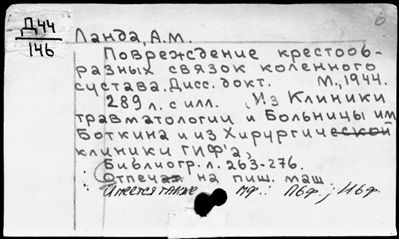 6
Д44
146
Ланда, А.М.
Повреждение крестооб-
разных связок коленного
сустава. Дисс. докт. М., 1944.
289 л. с илл. Из Клиники
травматологии и Больницы им
Боткина и из Хирургической
клиники ГИФ'а,
Библиогр. л. 263-276.
Отпечат на пиш. маш
Имеется также мф.: П6ф; И6ф